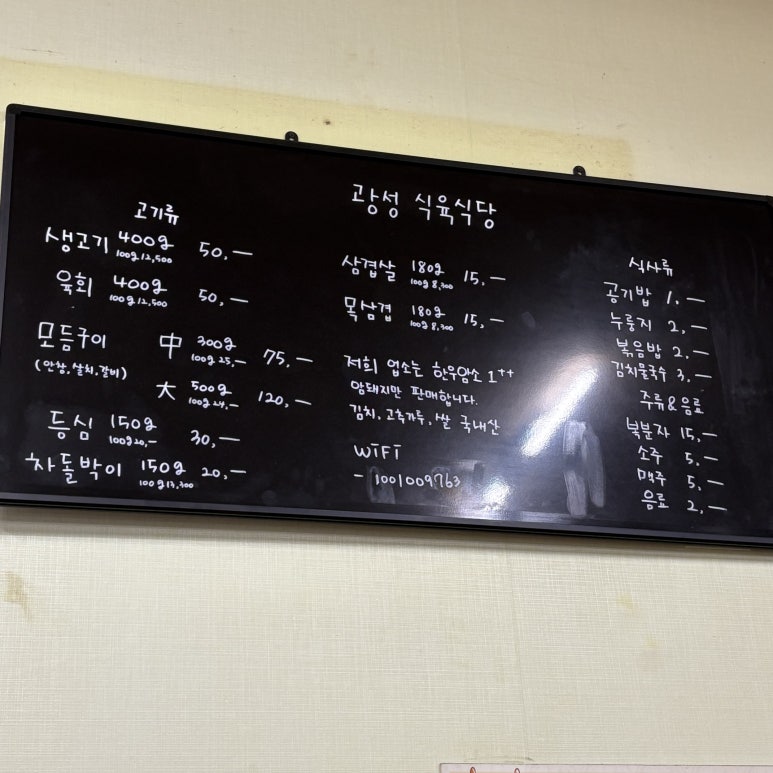 광성 식육식당
고기류
생고기 400g 50,—
100g 12,500
육회 400g 50,—
100g 12,500
모듬구이 中 300g 75,—
100g 25,—
(안창, 살치, 갈비)
大 500g 120,—
100g 24,—
등심 150g 30,—
100g 20,—
차돌박이 150g 20,—
100g 13,300
삼겹살 180g 15,—
100g 8,300
목삼겹 180g 15,—
100g 8,300
저희 업소는 한우암소 1++
암돼지만 판매합니다.
김치, 고추가루, 쌀 국내산
WiFi
- 1001009763
식사류
공기밥 1,—
누룽지 2,—
볶음밥 2,—
김치물국수 3,—
주류&음료
복분자 15,—
소주 5,—
맥주 5,—
음료 2,—